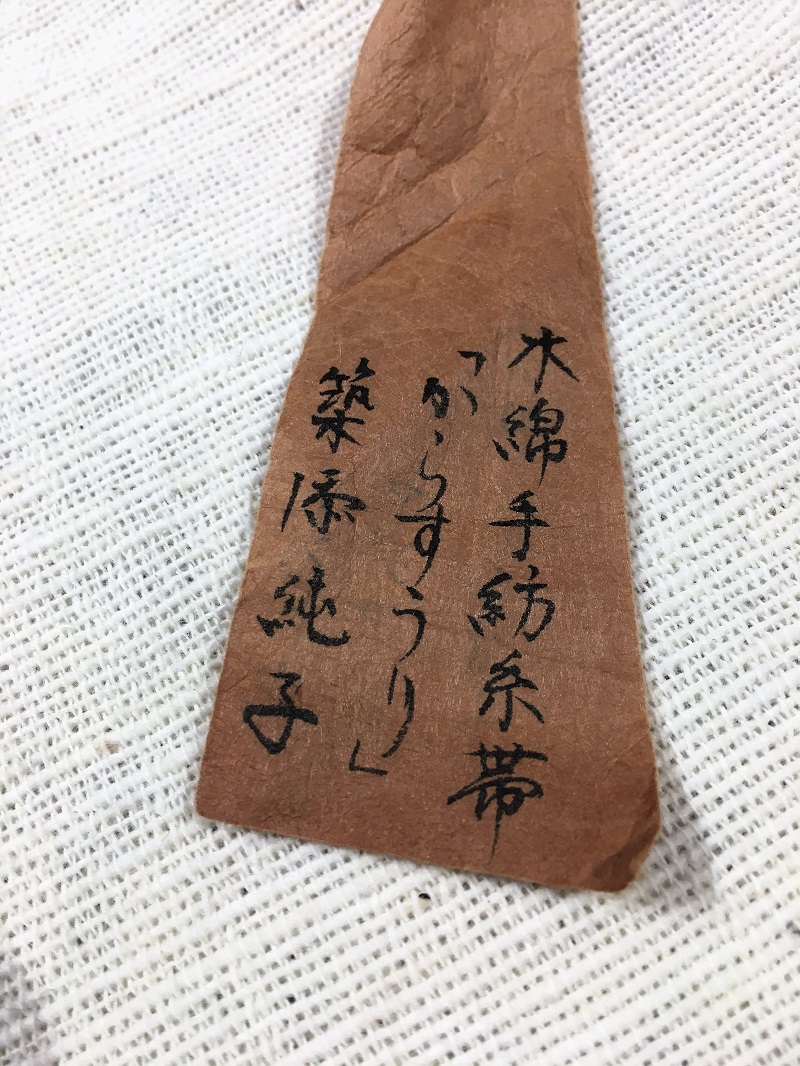 木綿手紡糸帯
「からすうり」
築添純子